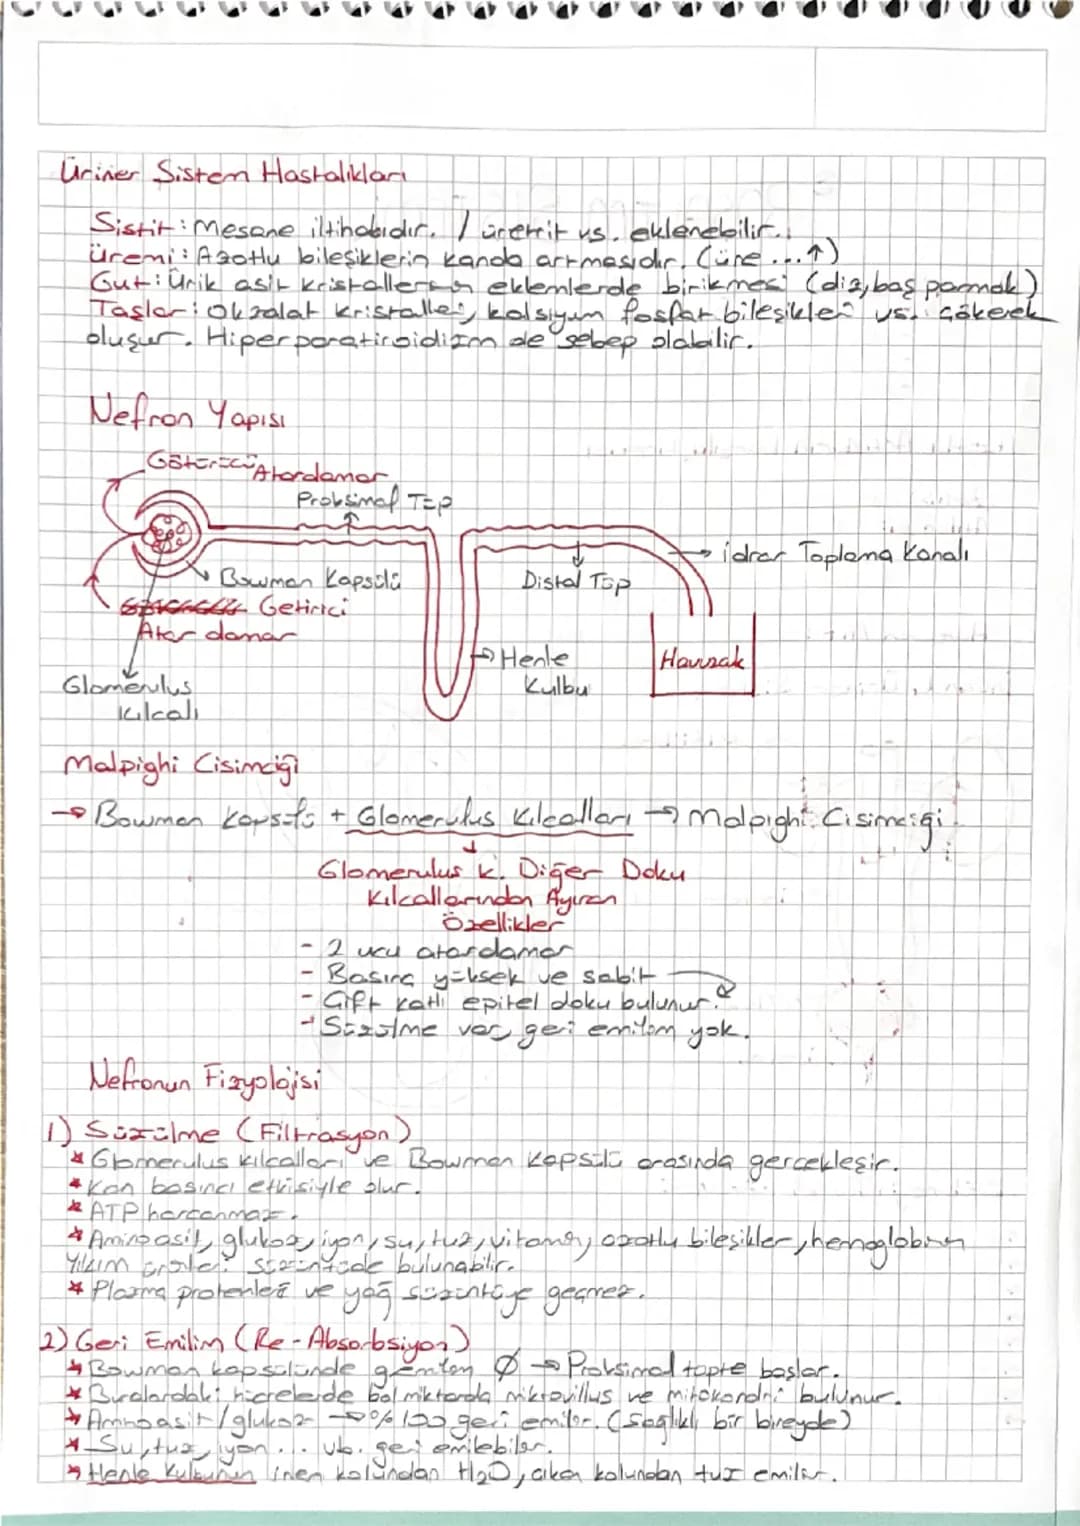 Üriner Sistem Hastalıkları
Sistit: Mesane iltihabıdır. / üretrit vs. eklenebilir.
Üremi: Azotlu bileşiklerin kanda artmasıdır. (üre ...↑)
Gut: Ürik asit kristallerinin eklemlerde birikmesi (diz, baş parmak)
Taşlar: Okzalat kristalleri, kalsiyum fosfat bileşikleri vs. çökerek
oluşur. Hiperparatiroidizm de sebep olabilir.
Nefron Yapısı
Götürücü Atardamar
Proksimal Tüp
İdrar Toplama Kanalı
Bowman Kapsülü
Distal Tüp
Getirici
Atar damar
Henle
Kulbu
Havuzak
Glomerulus
Kılcalı
Malpighi Cisimciği
→ Bowman Kapsülü + Glomerulus Kılcalları → Malpighi Cisimciği
Glomerulus k. Diğer Doku
Kılcallarından Ayıran
Özellikler
- 2 ucu atardamar
- Basınç yüksek ve sabit
- Çift katlı epitel doku bulunur.
- Süzülme var, geri emilim yok.
Nefronun Fizyolojisi
1) Süzülme (Filtrasyon)
* Glomerulus kılcalları ve Bowman kapsülü arasında gerçekleşir.
* Kan basıncı etkisiyle olur.
* ATP harcanmaz.
* Aminoasit, glukoz, iyon, su, tuz, vitamin, azotlu bileşikler, hemoglobinin
Yıkım ürünleri süzüntüde bulunabilir.
* Plazma proteinleri ve yağ süzüntüye geçmez.
2) Geri Emilim (Re-Absorbsiyon)
* Bowman kapsülünde g.emilim Ø → Proksimal tüpte başlar.
* Buralardaki hücrelerde bol miktarda mikrovillus ve mitokondri bulunur.
* Aminoasit / glukoz → %100 geri emilir. (Sağlıklı bir bireyde)
* Su, tuz, iyon... vb. geri emilebilir.
* Henle Kulbunun inen kolundan H₂O, çıkan kolundan tuz emilir.